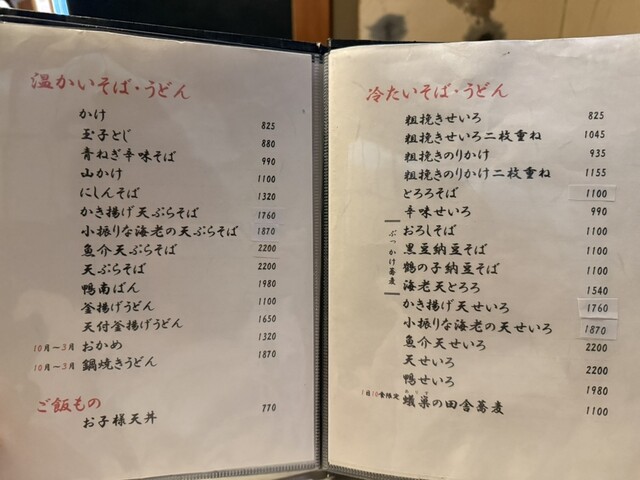 温かいそば・うどん
かけ 825
玉子とじ 880
青ねぎ辛味そば 990
山かけ 1100
にしんそば 1320
かき揚げ天ぷらそば 1760
小振りな海老の天ぷらそば 1870
魚介天ぷらそば 2200
天ぷらそば 2200
鴨南ばん 1980
釜揚げうどん 1100
天付釜揚げうどん 1650
10月〜3月 おかめ 1320
10月〜3月 鍋焼きうどん 1870
ご飯もの
お子様天丼 770
冷たいそば・うどん
粗挽きせいろ 825
粗挽きせいろ二枚重ね 1045
粗挽きのりかけ 935
粗挽きのりかけ二枚重ね 1155
とろろそば 1100
辛味せいろ 990
ぶっかけ蕎麦
おろしそば 1100
黒豆納豆そば 1100
鶴の子納豆そば 1100
海老天とろろ 1540
かき揚げ天せいろ 1760
小振りな海老の天せいろ 1870
魚介天せいろ 2200
天せいろ 2200
鴨せいろ 1980
1日10食限定 蟻巣の田舎蕎麦 1100